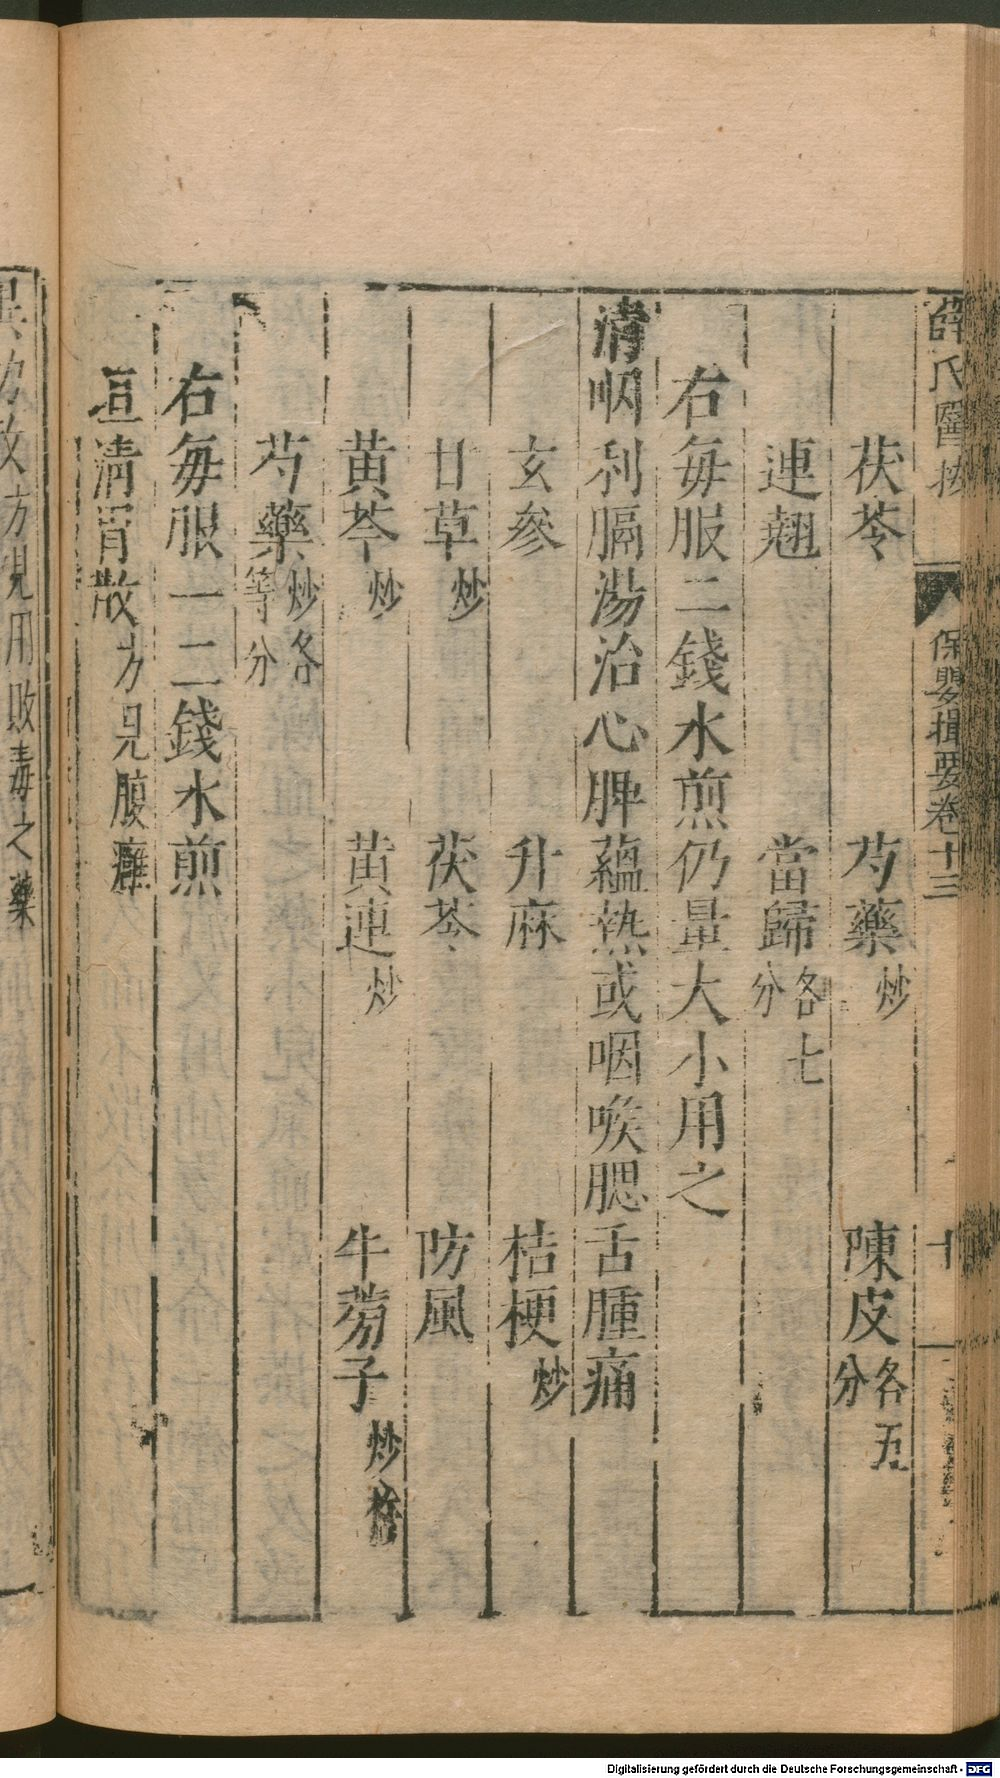 薛氏醫按 保嬰撮要卷十三 十
茯苓 芍藥炒 陳皮各五分
連翹 當歸各七分
右每服二錢水煎仍量大小用之
清咽利膈湯治心脾蘊熱或咽喉腮舌腫痛
玄參 升麻 桔梗炒
甘草炒 茯苓 防風
黃芩炒 黃連炒 牛蒡子炒杵
芍藥炒各等分
右每服一二錢水煎
清胃散方見腹癰
異功散方見用敗毒之藥
Digitalisierung gefördert durch die Deutsche Forschungsgemeinschaft - DFG